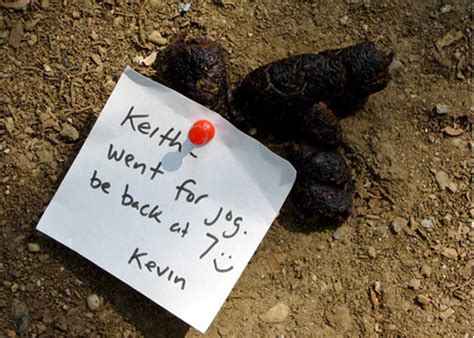 Keith-
went for jog.
be back at 7
Kevin